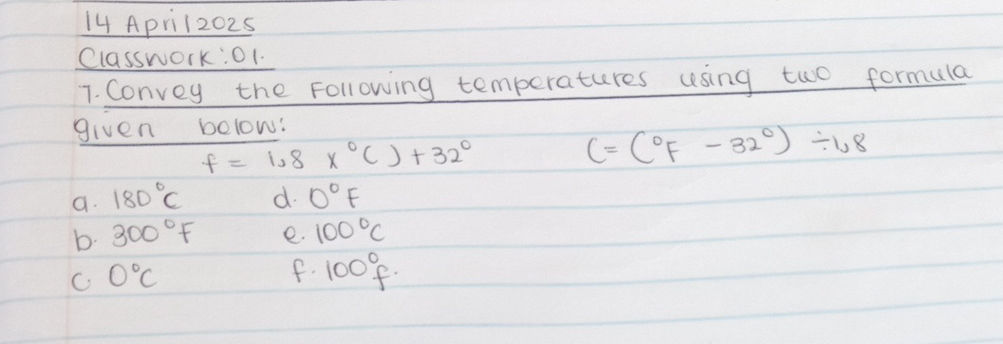 14 April 2025
Classwork:01.
7. Convey the Following temperatures using two formula
given below:
f = 1,8 x °C) + 32° C = (°F - 32°) ÷ 1,8
a. 180°C d. 0°F
b. 300°F e. 100°C
c. 0°C f. 100°f.